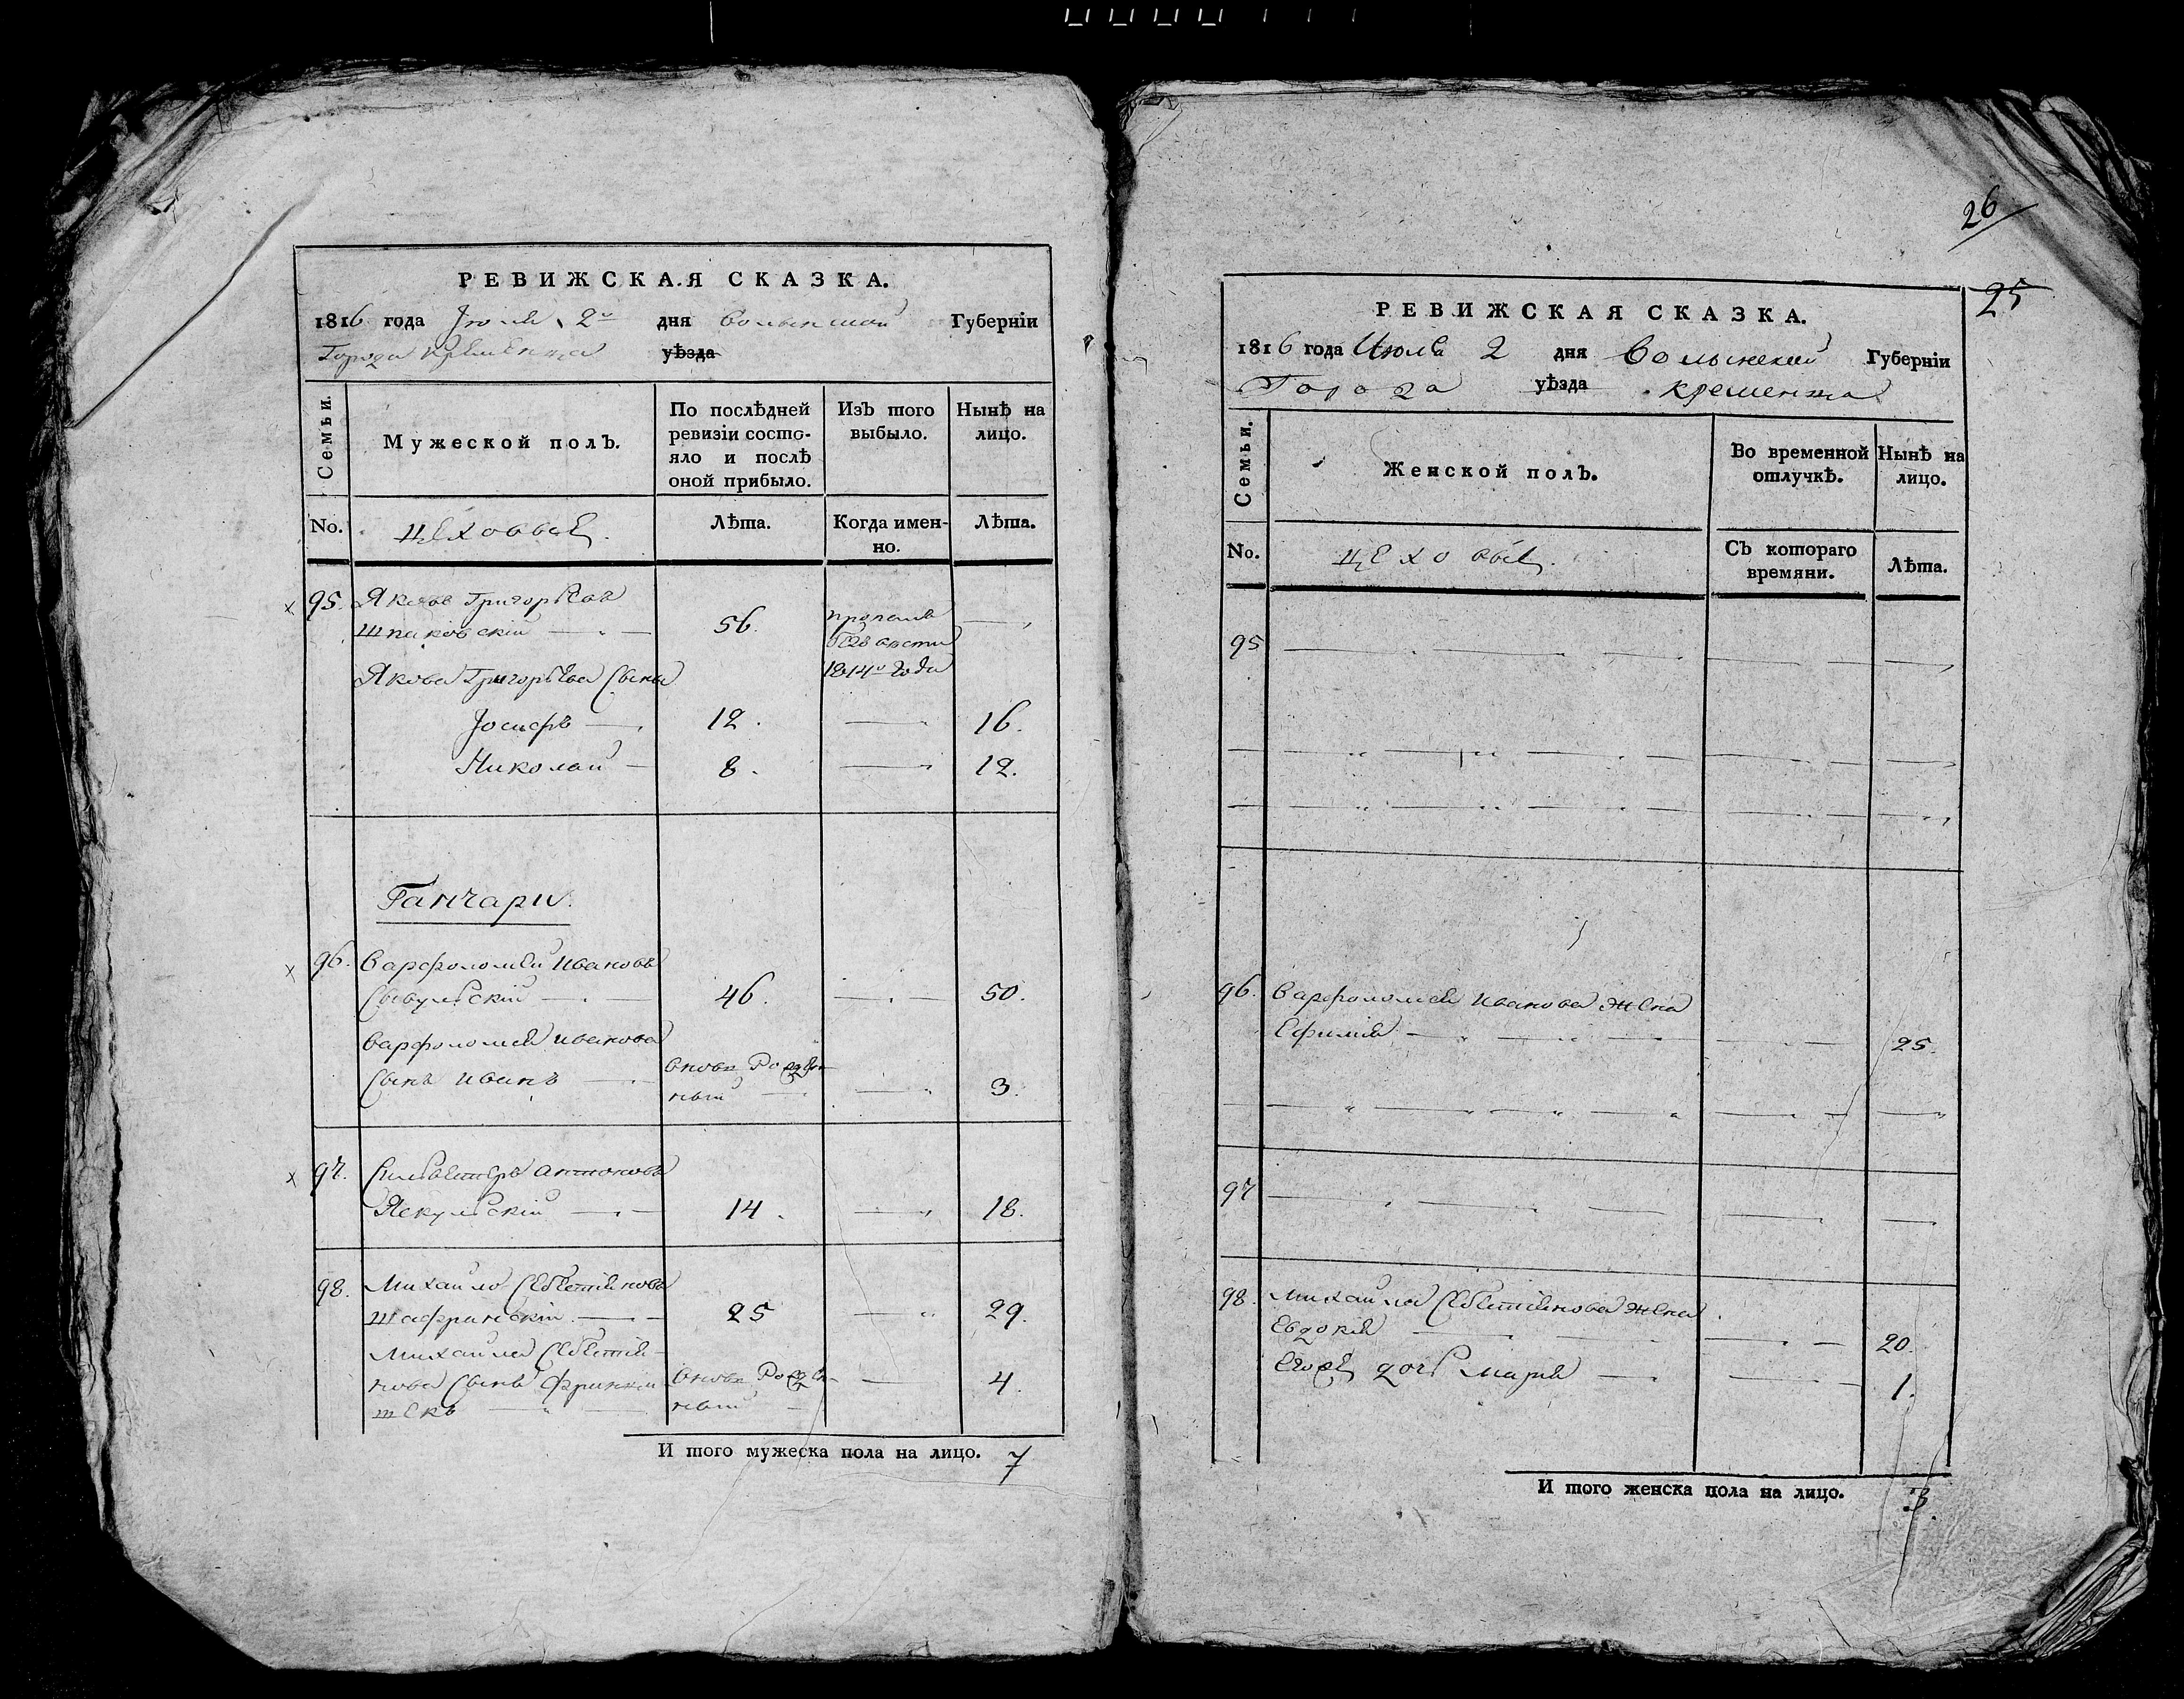 РЕВИЖСКАЯ СКАЗКА.
1816 года Іюля 2го дня Волынской Губерніи
Города Кременца уѣзда
Семьи.
Мужеской полъ.
По послѣдней
ревизіи состо-
яло и послѣ
оной прибыло.
Изъ того
выбыло.
Нынѣ на
лицо.
No.
цеховые.
Лѣта.
Когда имен-
но.
Лѣта.
95. Яковъ Григорьевъ
Шпаковскій 56. пропалъ
безъ вѣсти
Якова Григорьева Сыны 1814го года
Іосифъ 12. 16.
Николай 8. 12.
Ганчари.
96. Варфоломей Ивановъ
Сывульскій 46. 50.
Варфоломея Иванова
Сынъ Иванъ вновь Рожден-
ный 3.
97. Сильвестеръ Антоновъ
Яскульскій 14. 18.
98. Михайло Себетіяновъ
Шафринскій 25 29.
Михайла Себетія-
нова Сынъ вновь Рожден- 4.
ный
И того мужеска пола на лицо. 7
26
25
РЕВИЖСКАЯ СКАЗКА.
1816 года Июля 2 дня Волынской Губерніи
Города уѣзда Кременца
Семьи.
Женской полъ.
Во временной
отлучкѣ.
Нынѣ на
лицо.
No.
цеховые.
Съ котораго
времяни.
Лѣта.
95
96. Варфоломея Иванова жена
Ефимія 25.
97
98. Михайла Себетіянова жена
Евдокія 20.
Егоже дочь Марія 1.
И того женска пола на лицо. 3.